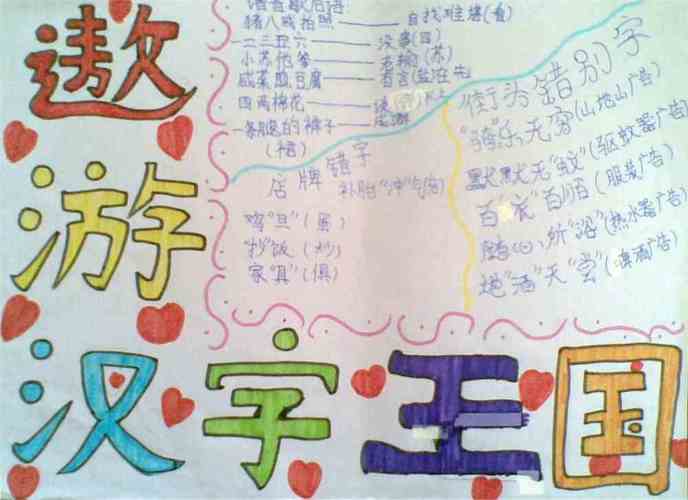 遨
游
汉字王国
谐音歇后语:
猪八戒拍照——自找难堪(看)
一二三五六——没事(四)
小苏他爷——老输(苏)
咸菜脑豆腐——有言(盐)在先
四两棉花——
一条腿的裤子——
店牌错字
补胎"冲"气
鸡"旦"(蛋)
"抄"饭(炒)
家"俱"(具)
街头错别字
"骑"乐无穷(山地山广告)
默默无"蚊"(驱蚊器广告)
百"衣"百顺(服装广告)
随心所"浴"(热水器广告)
地"酒"天"尝"(啤酒广告)